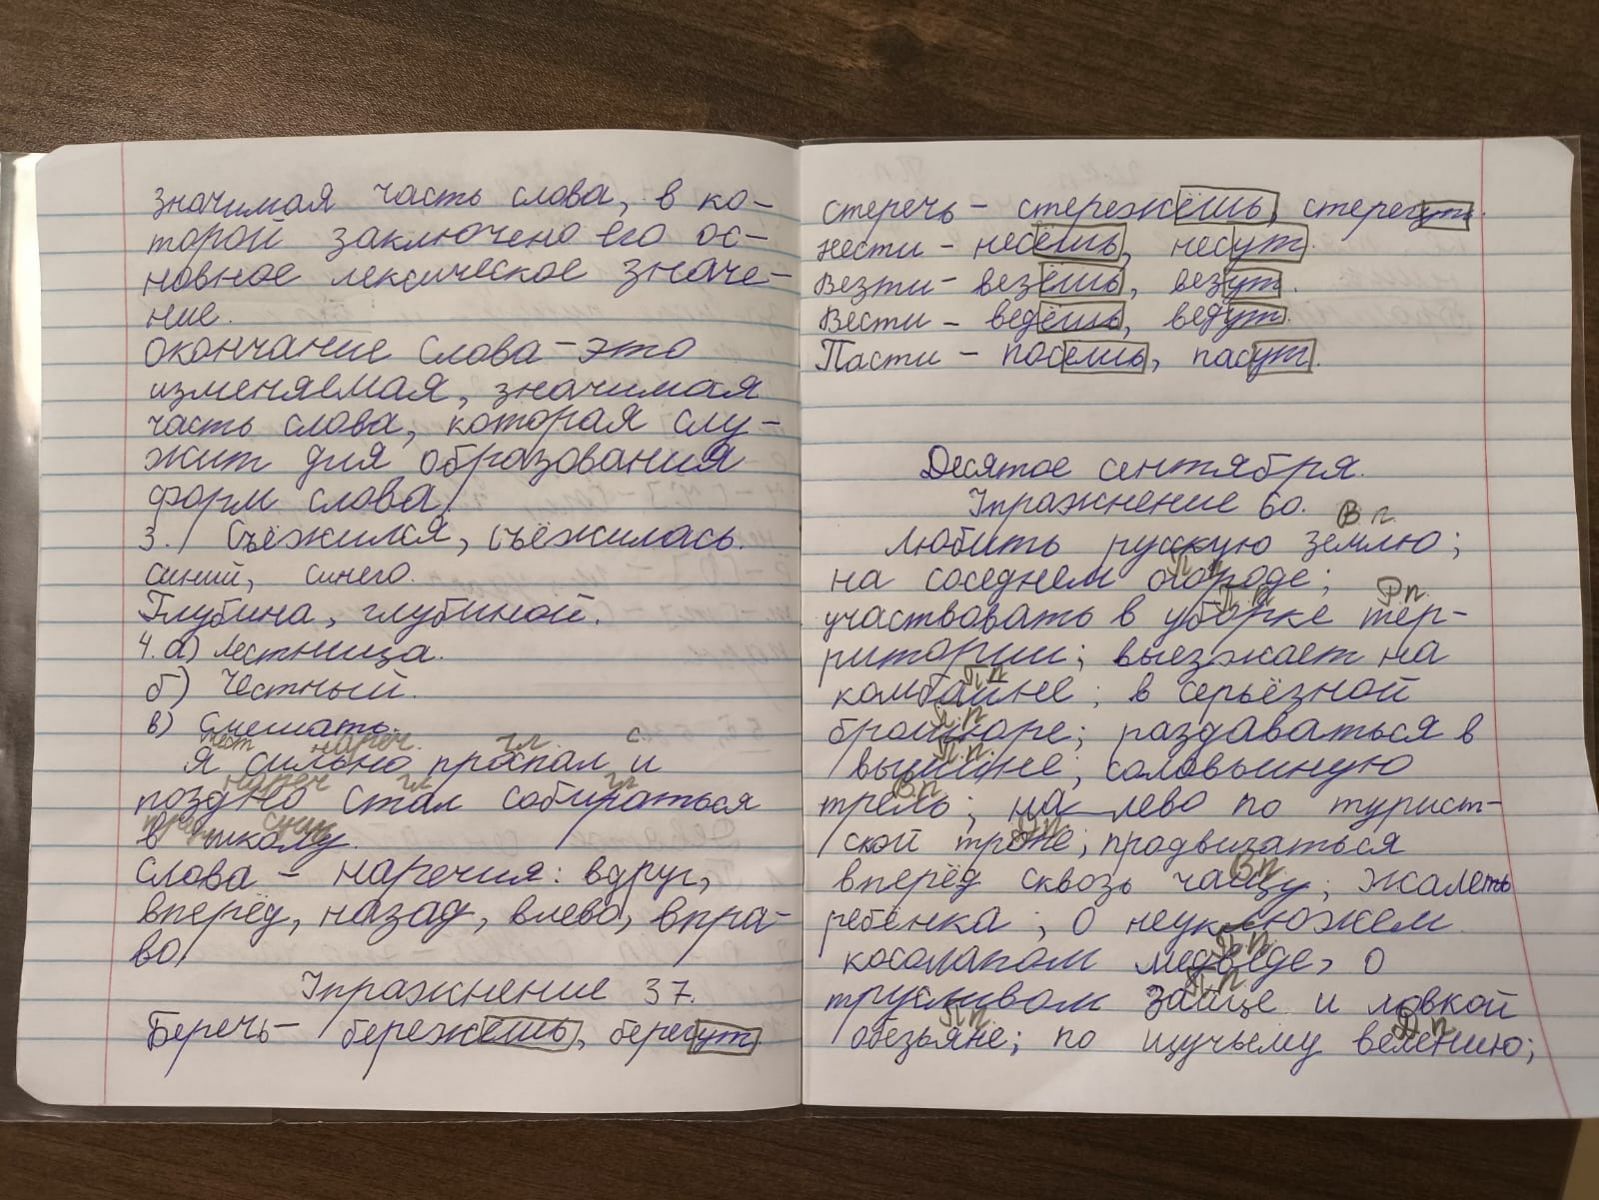 значимая часть слова, в ко-
торой заключено его ос-
новное лексическое значе-
ние.
окончание слова - это
изменяемая, значимая
часть слова, которая слу-
жит для образования
форм слова
3. Съёжился, съёжилась.
синий, синего.
Глубина, глубиной.
4. а) лестница.
б) Честный.
в) Смешать.
мест нареч. гл. с.
Я сильно проспал и
нареч гл гл
поздно стал собираться
сущ
в школу.
Слова - наречия: вдруг,
вперёд, назад, влево, впра-
во
Упражнение 37.
Беречь - бережёшь, берегут
стеречь - стережёшь, стерегут.
нести - несёшь, несут.
Везти - везёшь, везут.
Вести - ведёшь, ведут.
Пасти - пасёшь, пасут.
Десятое сентября.
Упражнение 60.
В.п.
Любить русскую землю;
П.п
на соседнем огороде;
П.п Р.п.
участвовать в уборке тер-
ритории; выезжает на
П.п
комбайне; в серьёзной
П.п
брошюре; раздаваться в
П.п.
вышине; соловьиную
В.п
трель; на лево по турист-
Д.п.
ской тропе; продвигаться
В.п
вперёд сквозь чащу; жалеть
ребёнка; о неуклюжем
П.п.
косолапом медведе, о
П.п
трусливом зайце и ловкой
П.п. Д.п
обезьяне; по щучьему велению;